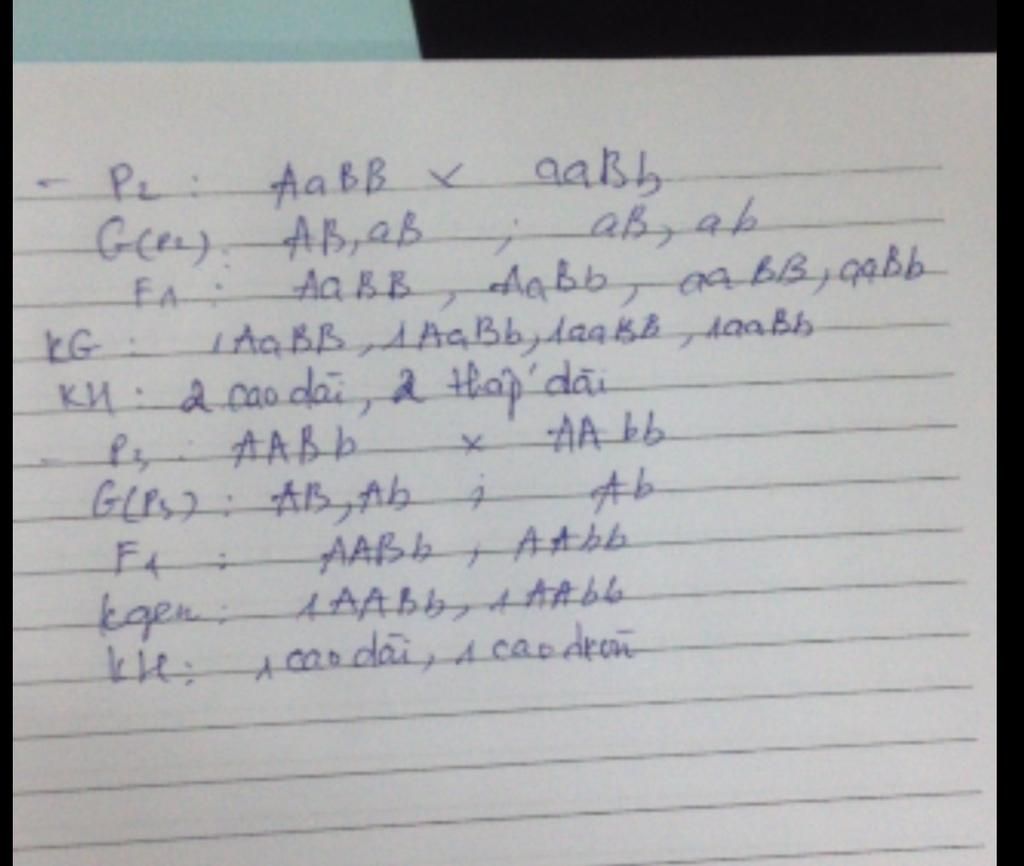 - P2 : AaBB × aaBb
G(P2) : AB, aB ; aB, ab
F1 : AaBB, AaBb, aaBB, aaBb
KG : 1AaBB, 1AaBb, 1aaBB, 1aaBb
KH : 2 cao dài, 2 thấp dài
- P3 : AABb × AAbb
G(P3) : AB, Ab ; Ab
F1 : AABb, AAbb
kgen : 1AABb, 1AAbb
KH : 1 cao dài, 1 cao